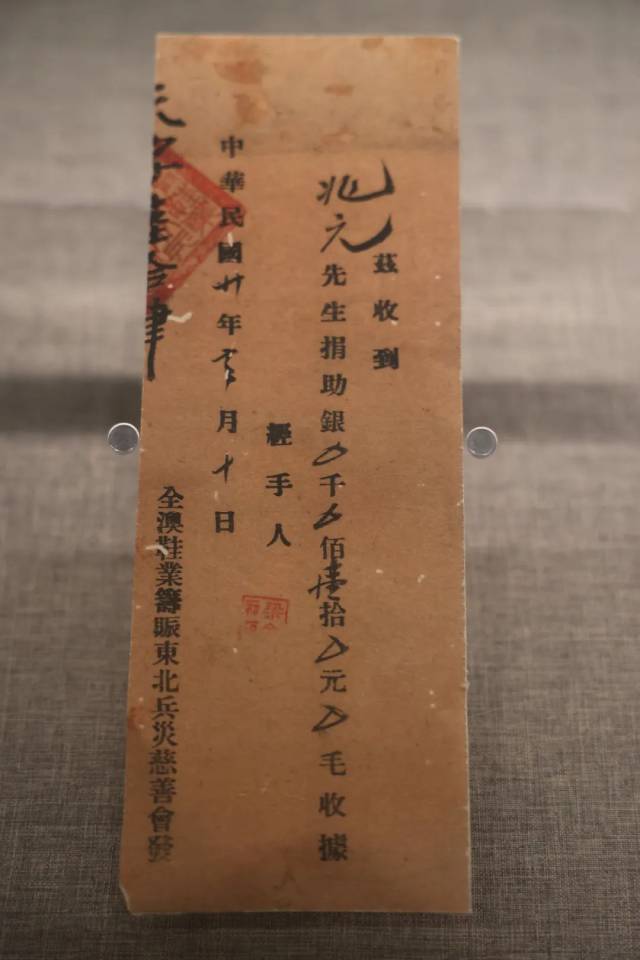 茲收到
兆元先生捐助銀〇千〇佰壹拾〇元〇毛收據
經手人
中華民國廿年月十日
全澳鞋業籌賑東北兵災慈善會發